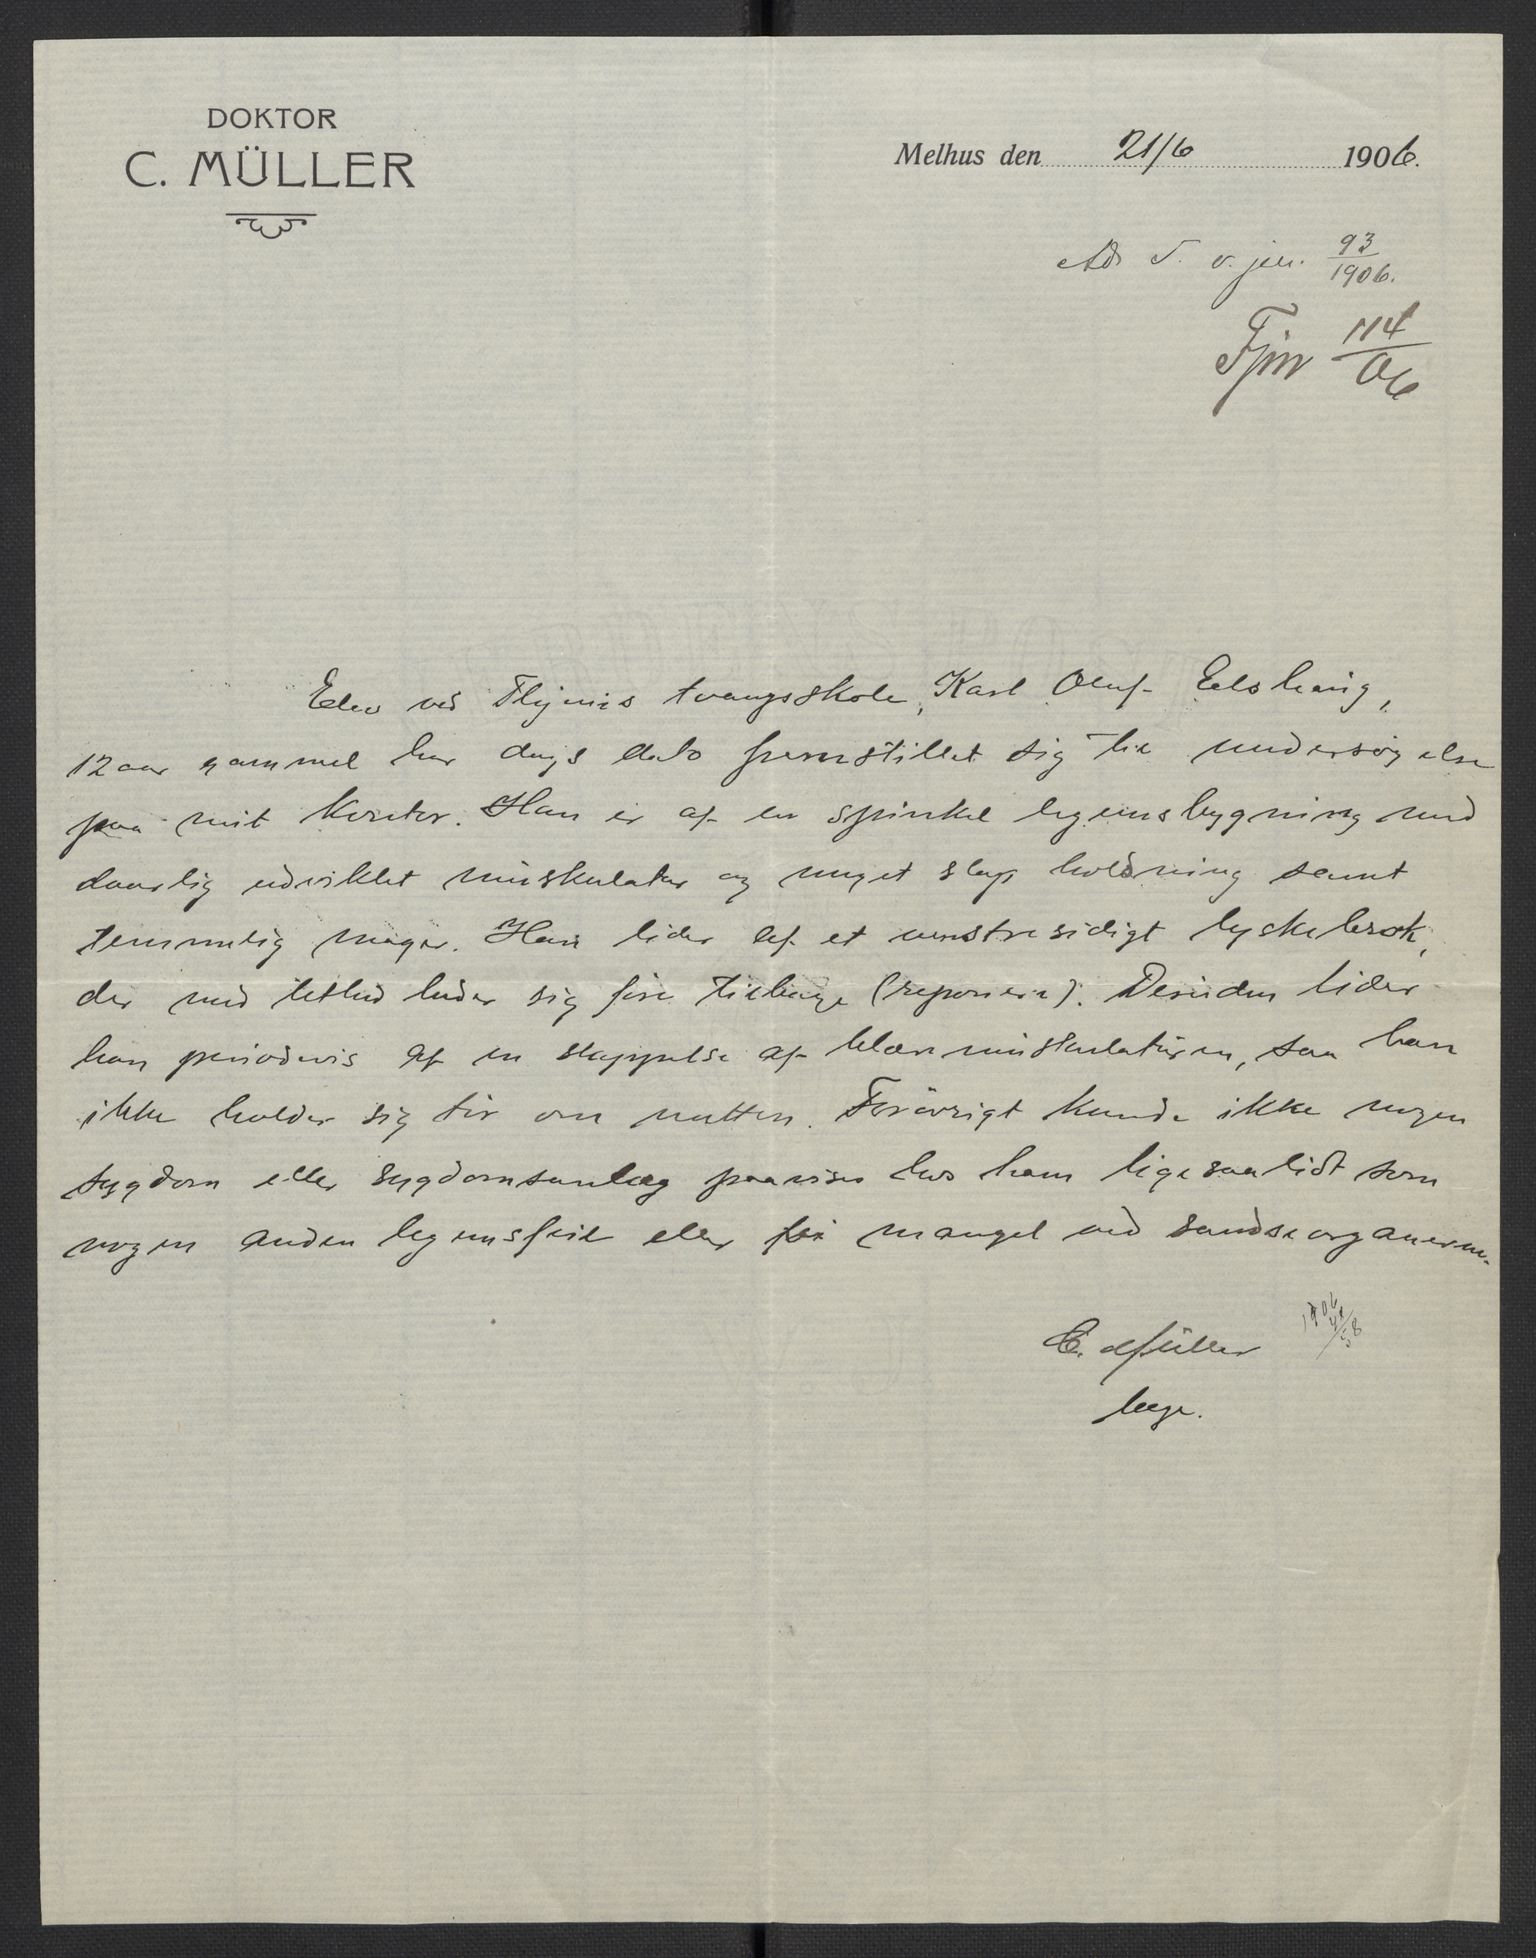 DOKTOR
C. MÜLLER
Melhus den 21/6 1906.
93
1906.
Fjm 114
06
Elev ved Flegnis tvangsskole, Karl Oluf
12 aar gammel har dags dato fremstillet sig til undersøgelse
paa mit kontor. Han er af en spinkel legemsbygning med
daarlig udviklet muskulatur og meget slap holdning samt
temmelig mager. Han lider af et venstresidigt lyskebrok,
der med lethed lader sig føre tilbage (reponere). Desuden lider
han periodevis af en slappelse af blæremuskulaturen, saa han
ikke holder sig tør om natten. Forøvrigt kunde ikke nogen
sygdom eller sygdomsanlæg paavises hos ham ligesaalidt som
nogen anden legemsfeil eller mangel ved sandseorganerne.
C. Müller
læge.